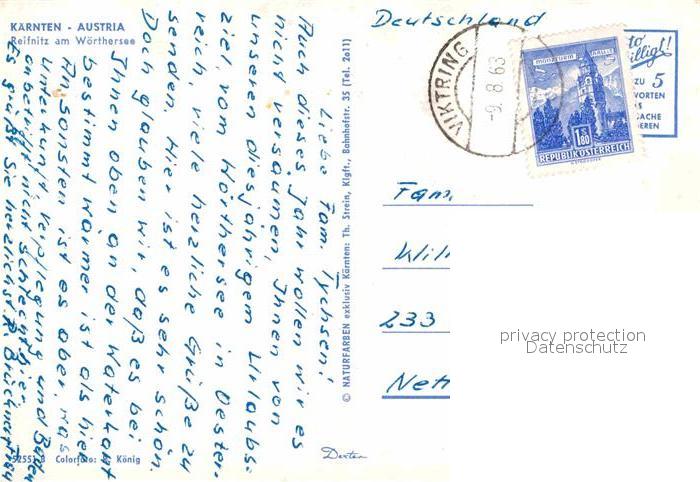 KÄRNTEN - AUSTRIA
Reifnitz am Wörthersee
Liebe Fam. Tychsen!
Auch dieses Jahr wollen wir es
nicht versäumen, Ihnen von
unseren diesjährigem Urlaubs-
ziel, vom Wörthersee in Oester-
reich, viele herzliche Grüße zu
senden. Hier ist es sehr schön.
Doch glauben wir, daß es bei
Ihnen oben an der Waterkant
bestimmt wärmer ist als hier
Ansonsten ist es aber, was
Unterkunft Verpflegung und
anbetrifft nicht schlecht hier.
Es grüßt Sie herzlichst R. Frau
52551 B Colorfoto: König
© NATURFARBEN exklusiv Kärnten: Th. Strein, Klgft., Bahnhofstr. 35 (Tel. 2611)
Deutschland
VIKTRING
-9.8.63
1.80
REPUBLIK ÖSTERREICH
ZU 5
WORTEN
Fam.
233
privacy protection
Datenschutz